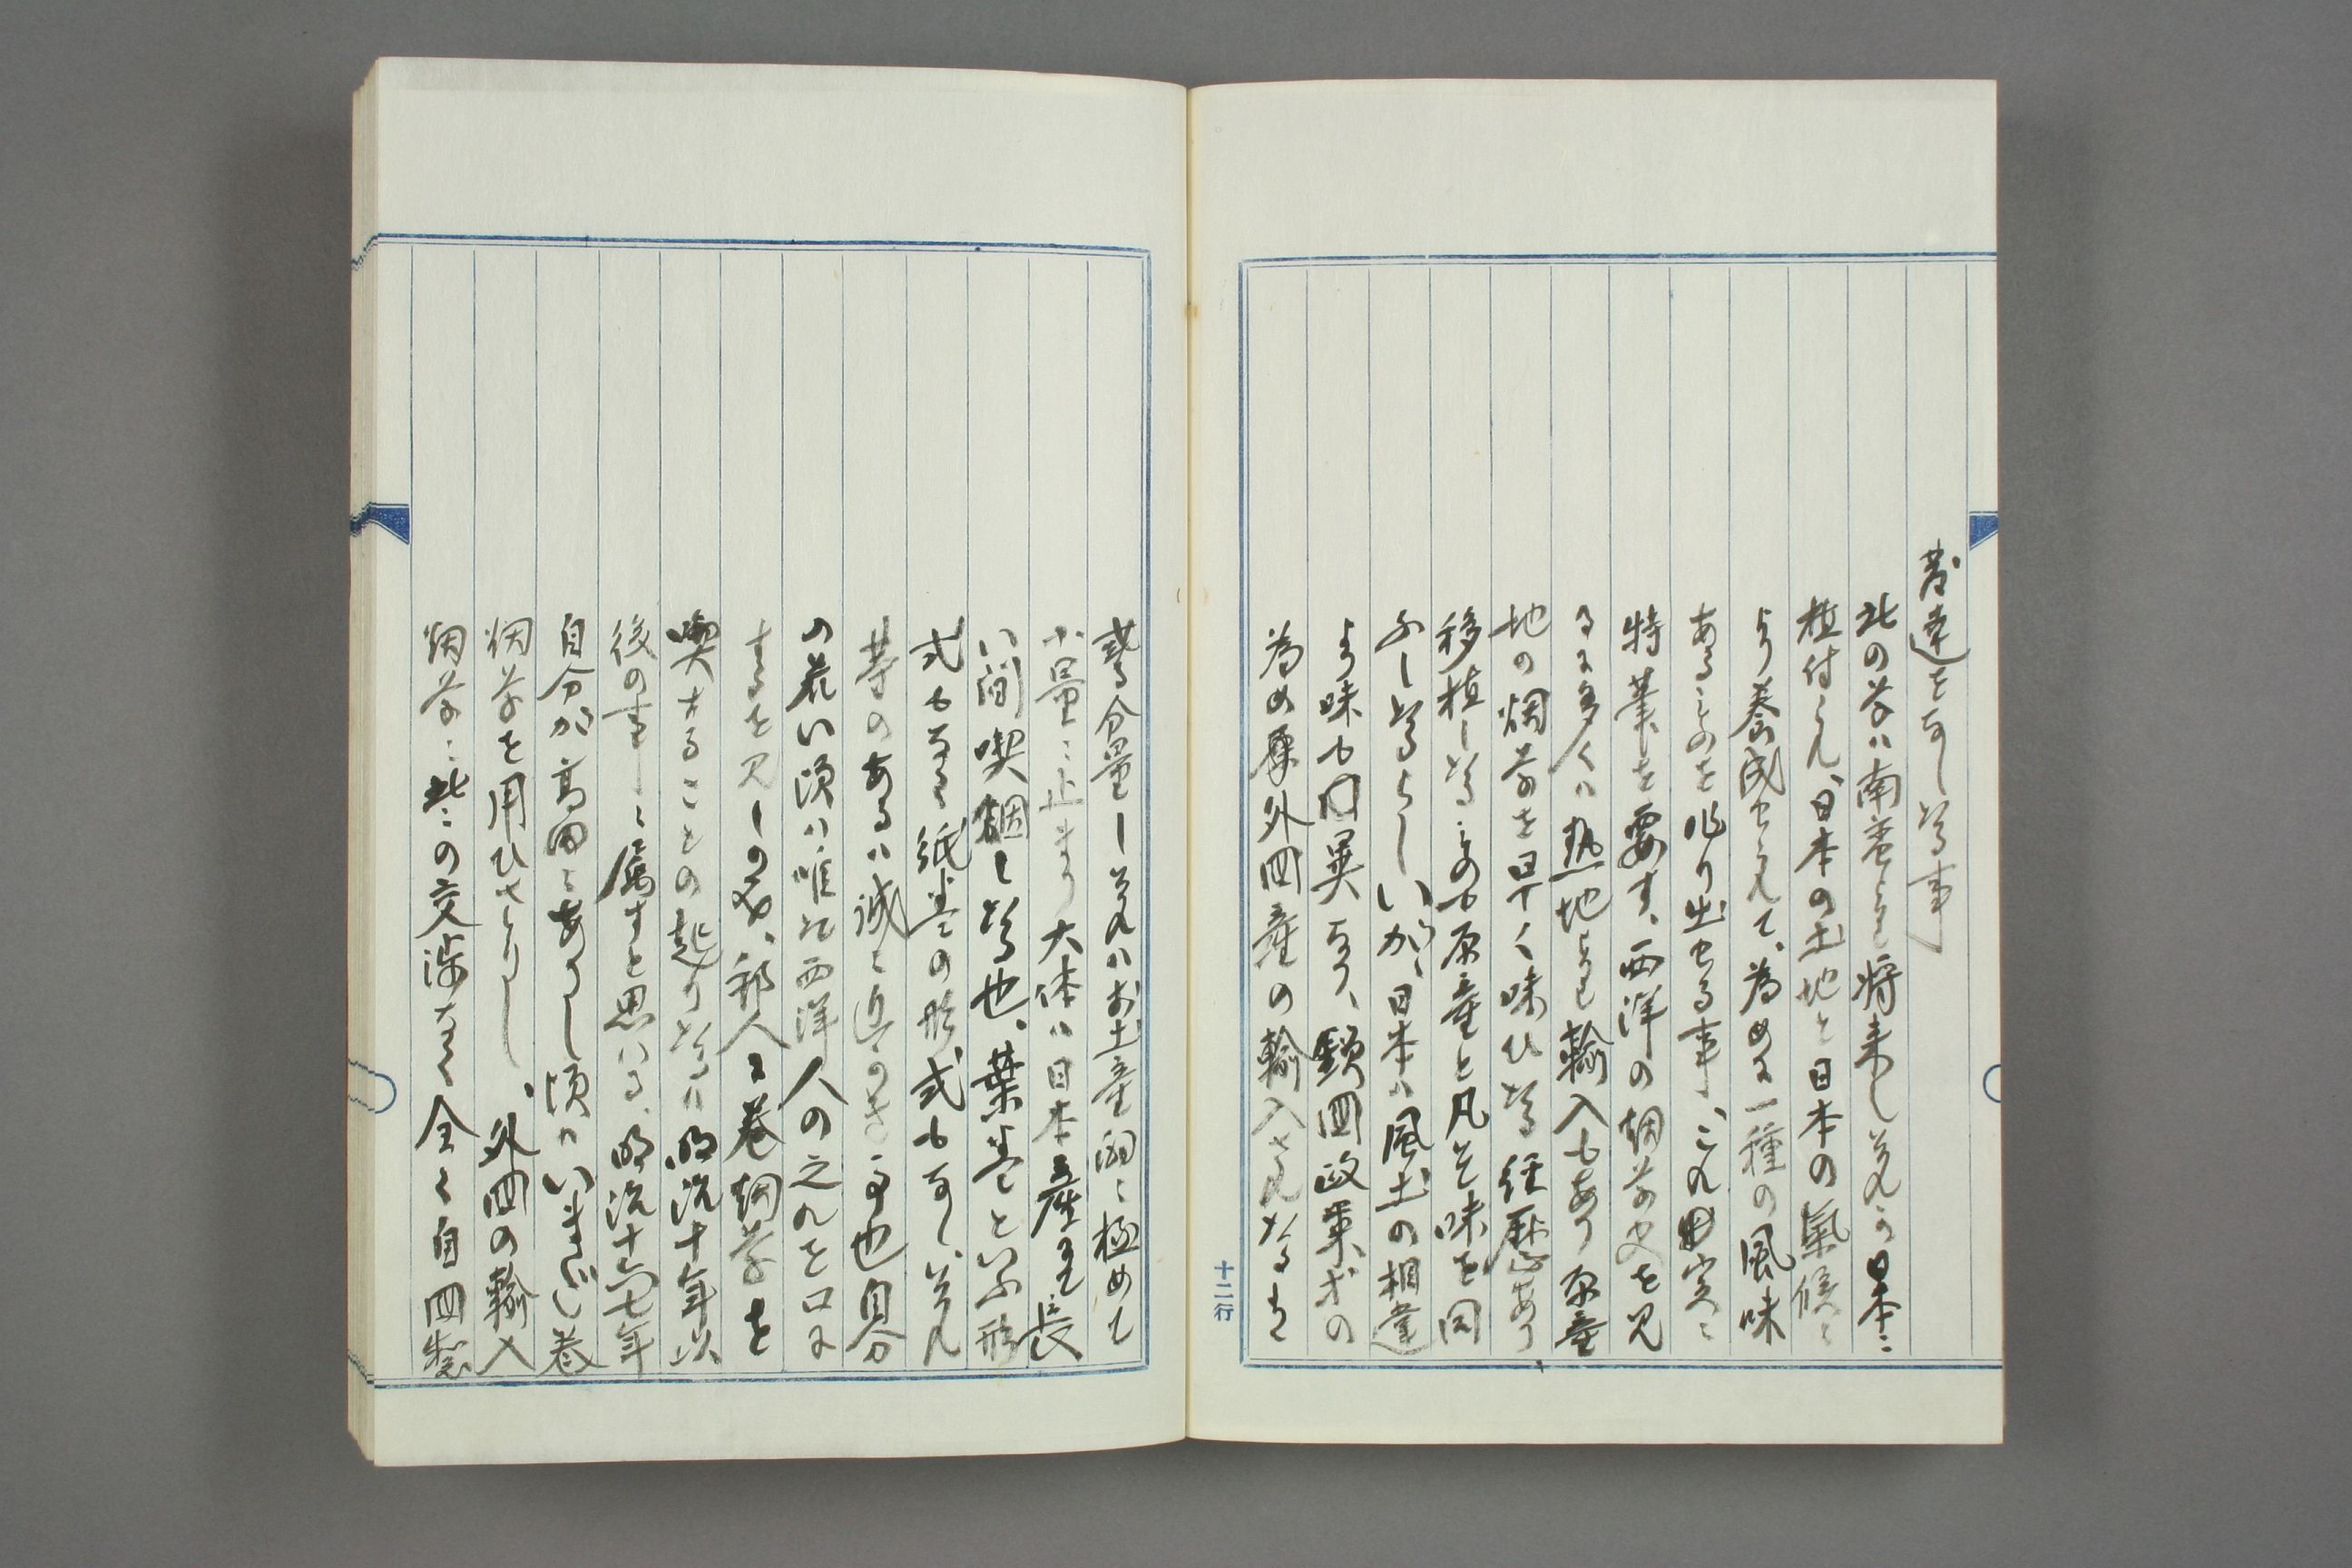 発達をなしたる事
此の草ハ南蛮より将来しそれが日本ニ
植付られ、日本の土地と日本の氣候と
より養成せられて、為めに一種の風味
あるものを作り出せる事、これ
特筆を要す、西洋の烟草史を見
るに多くハ熱地より輸入もあり原産
地の烟草を早く味ひたる経歴あり
移植したるものも原産と凡そ味を同
ふしたるらしいが、日本ハ風土の相違
より味も異なり、鎖国政策の
為め海外国産の輸入されたると
分量しそれハお土産的ニ極めて
小量ニ止まり大体ハ日本産を以て長
い間喫烟したる也、葉巻といふ形
式もなく紙巻の形式もなし、それ
等のあるハ誠に近のき事也自分
の若い頃ハ唯だ西洋人の之れを口に
するを見しのみ、邦人に巻烟草を
喫することの起りたるハ明治十年以
後の事に属すと思ハる、明治十六七年
自分が高田にありし頃ハいまだ巻
烟草を用ひざりし、外国の輸入
烟草ニ此の交渉なく全く自国製